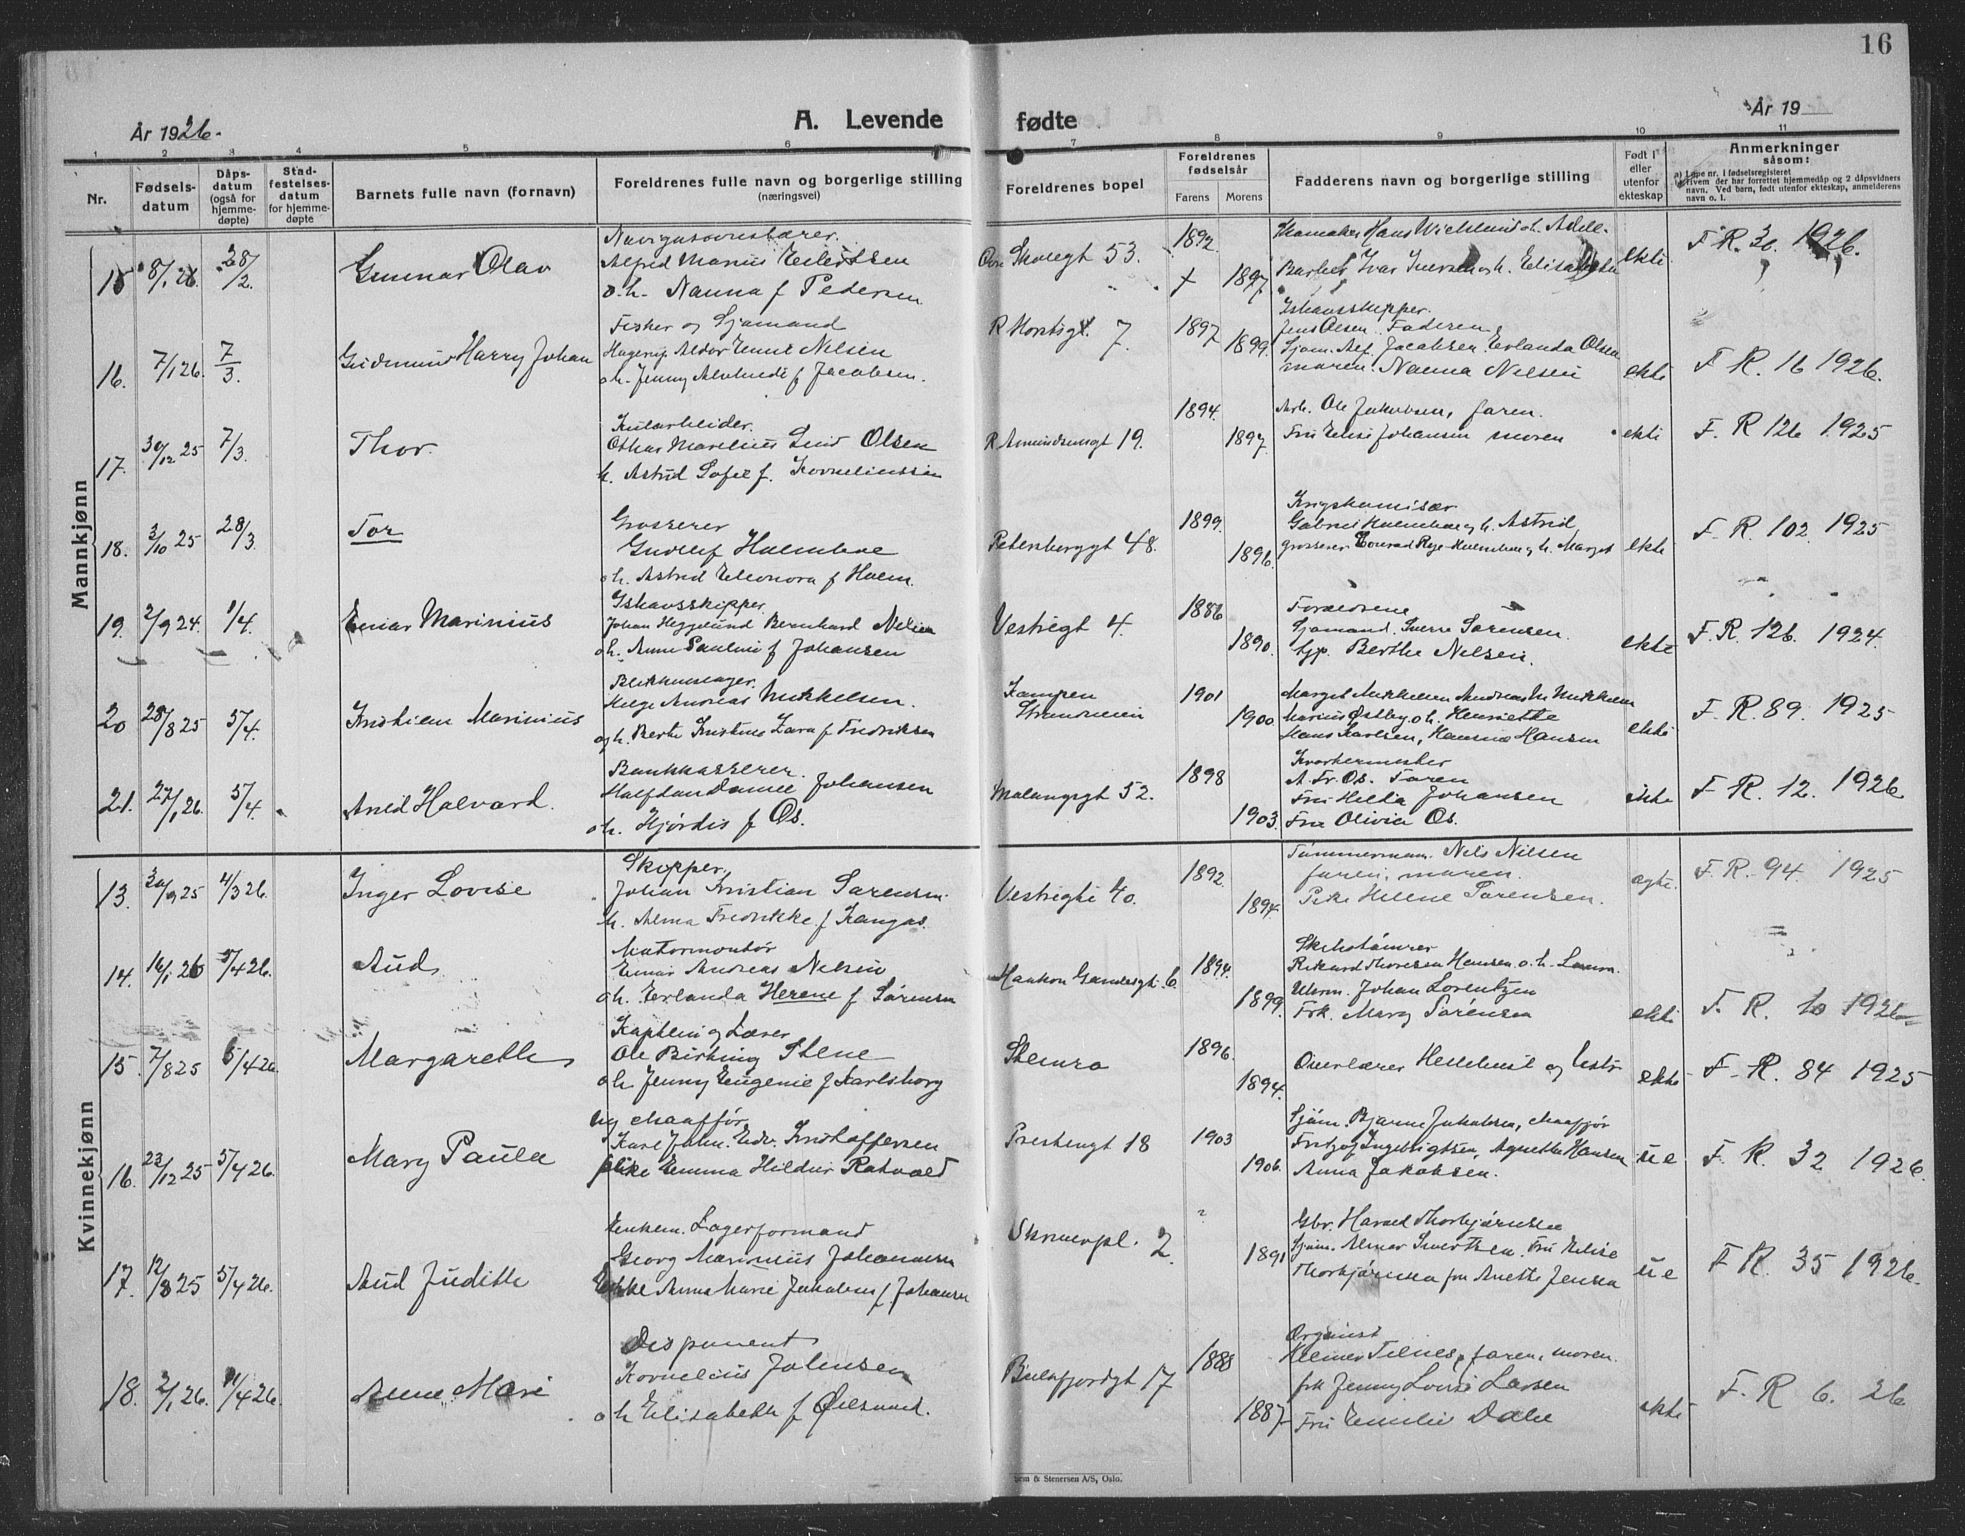 16
År 1926.
A. Levende fødte
År 19
1 2 3 4 5 6 7 8 9 10 11
Nr.
Fødsels-
datum
Dåps-
datum
(også for
hjemme-
døpte)
Stad-
festelses-
datum
for hjemme-
døpte
Barnets fulle navn (fornavn)
Foreldrenes fulle navn og borgerlige stilling
(næringsvei)
Foreldrenes bopel
Foreldrenes
fødselsår
Farens Morens
Fadderens navn og borgerlige stilling
Født i
eller
utenfor
ekteskap
Anmerkninger
såsom:
a) Løpe nr. i fødselsregisteret
hvem der har forrettet hjemmedåp og 2 dåpsvidners
navn. Ved barn, født utenfor ekteskap, anmelderens
navn o. l.
Mankjønn
15 8/1 26. 28/2. Gunnar Olav
Alfred Marius Eilertsen
o.h. Nanna f Pedersen
Skolegt 53. 1892. 1897
ekte F R. 30. 1926.
16. 7/1 26. 7/3. Gudmund Harry Johan
Fisker og Sjømand
Nilsen
o.h. Jenny f Jacobsen.
7. 1897 1899.
Ishavsskipper
Jens Olsen. Faderen
Sjøm. Alf. Jacobsen. Erlanda Olsen
moren. Nanna Nilsen
ekte F R. 16 1926.
17. 30/12 25 7/3. Thor.
Kularbeider.
Othar Marelius Olsen
h. Astrid Sofie f. Korneliussen
R Amundsensgt 19. 1894. 1897.
Arb. Ole Jakobsen, faren.
Fru Elise Johansen moren
ekte F. R 126 1925
18. 3/10 25 28/3. Tor
Grosserer
Gudleif Holmboe
o h. Astrid Eleonora f Holm.
Petersborggt 48. 1899. 1896.
Krigskomisær
Gabriel Holmboe og h. Astrid
grosserer Conrad Rye-Holmboe og h. Margit
ekte F. R. 102. 1925
19. 2/9 24. 1/4. Einar Marinius
Ishavsskipper.
Johan Heggelund Bernhard Nilsen
o h. Anna Pauline f Johansen
Vestregt 4. 1886 1890.
Foreldrene
Sjømand. Sverre Sørensen.
tjp. Berthe Nelsen.
ekte F. R. 126. 1924.
20 28/8 25 5/4. Kristian Marinius
Blikkenslager.
Helge Andreas Mikkelsen.
og h. Berte Kristine Lara f Fredriksen
Kampen
Strandveien
1901 1900
Margit Mikkelsen Andreas M Mikkelsen
Marius Østby o h. Henriette
Hans Karlsen, Hansine Hansen
ekte F. R. 89. 1925
21. 27/1 26. 5/4. Arild Halvard.
Bankkasserer.
Halfdan Daniel Johansen
o h. Hjørdis f Os.
Malangsgt 52. 1898 1903.
Kvartermester
A. Fr. Os. Faren
Fru Hilda Johansen
Fru Olivia Os.
ekte F R. 12. 1926
Kvinnekjønn
13. 30/9 25 4/3 26. Inger Lovise
Skipper.
Johan Kristian Sørensen.
h. Alma Fredrikke f Kangas.
Vestregt 40. 1892. 1894.
Tømmermann. Nils Nilsen
faren, moren.
Pike Helene Sørensen.
ægte. F. R. 94. 1925
14. 16/1 26 5/4 26. Aud
Motormontør
Einar Andreas Nilsen
o h. Erlanda Herene f Sørensen
Haakon Gamlesgt. 6 1894. 1899.
Skibstømrer
Rikard Thoresen Hansen o.h.
Johan Lorentzen
Frk. Mary Sørensen
ekte F. R. 10 1926
15. 7/8 25 5/4 26. Margarethe
Kaptein og Lærer
Ole Birkeng Stene
o h Jenny Eugenie f Karlsborg
Stenro 1896. 1894.
Overlærer
ekte F. R. 84 1925
16. 23/12 25 5/4 26. Mary Paula
Ug chauffør
Karl Johan. Edv. Kristoffersen
pike Emma Hildur Rotvold
Prestengt 18 1903 1906.
Sjøm. Bjarne Jakobsen, chauffør
Fritjof Ingebrigtsen, Agnethe Hansen
Anna Jakobsen.
ue F. R. 32 1926.
17. 12/8 25 5/4 26. Aud Judith
Enkem. Lagerformand
Georg Marinius Johannesen
Enke Anna Marie Jakobsen f Johansen
Skrivepl. 2. ? 1891
Gbr. Harald Thorbjørnsen
Sjøm. Almar Sivertsen. Fru Elise
Thorbjørnsen fru Anette Jensen
ue F R. 35 1926.
18. 2/1 26. 11/4 26. Anne Marie
Disponent
Kornelius Johnsen
o h Elisabeth f
Balsfjordgt 17 1888 1887.
Organist
Helmer Tilnes, faren, moren.
frk Jenny Lovise Larsen
Fru Emilie Dahl
ekte F. R 6. 26
& Stenersen A/S, Oslo.